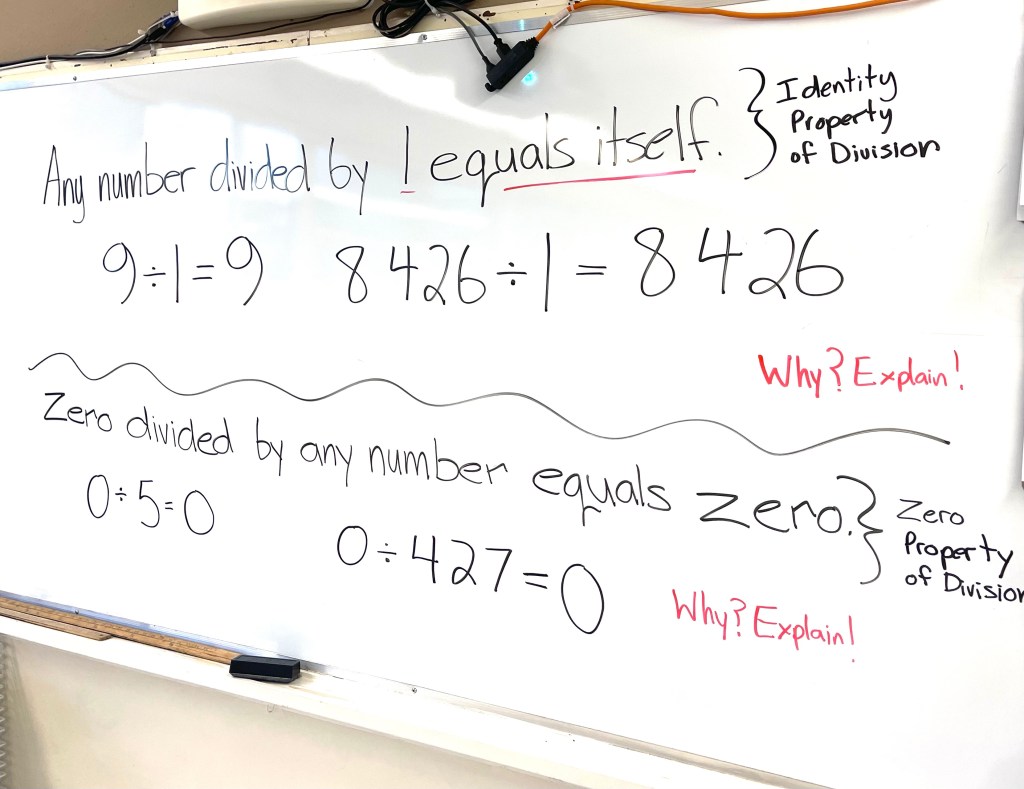 Any number divided by 1 equals itself. } Identity
Property
of Division
9÷1=9 8426÷1=8426
Why? Explain!
Zero divided by any number equals zero. } Zero
Property
of Division
0÷5=0
0÷427=0
Why? Explain!